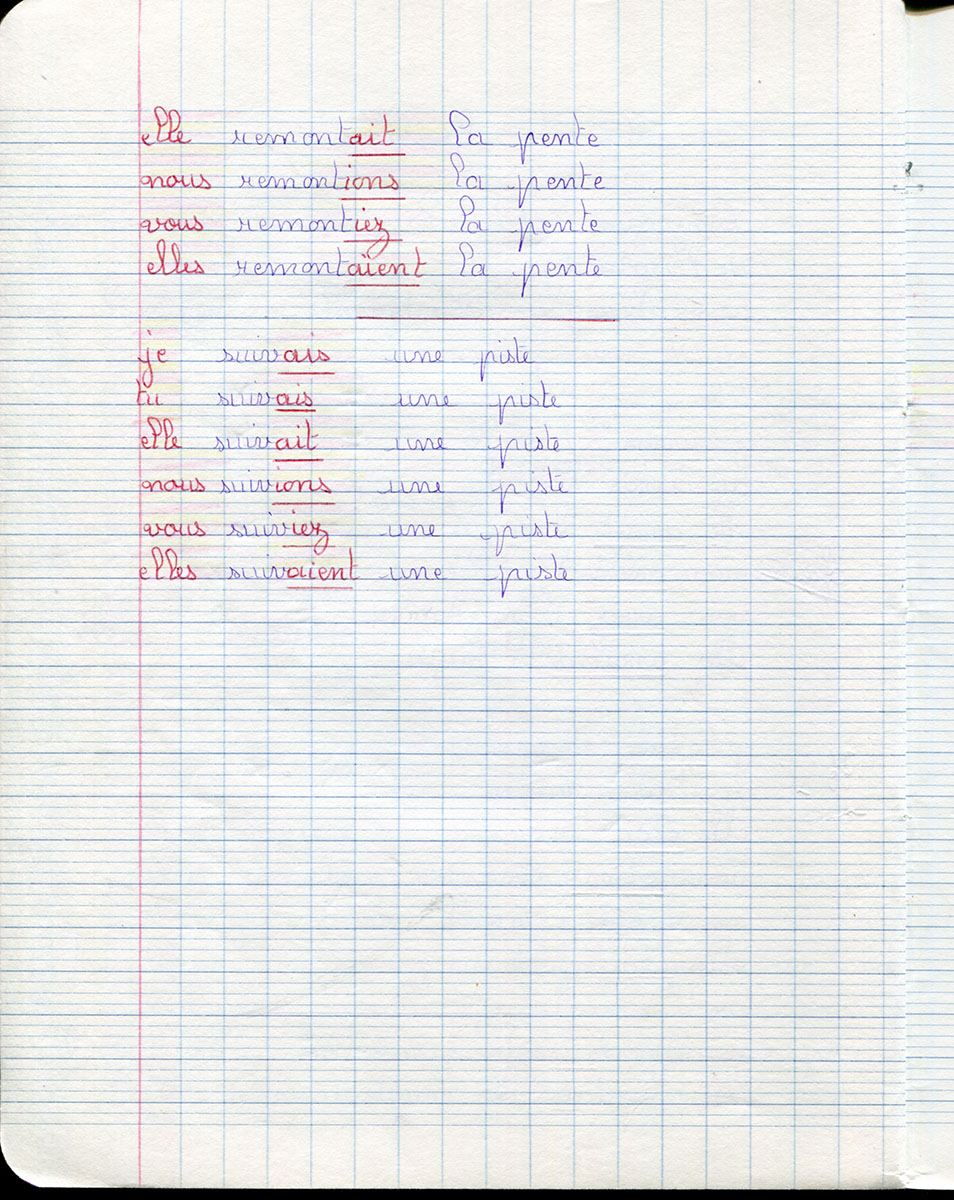 elle remontait la pente
nous remontions la pente
vous remontiez la pente
elles remontaient la pente
je suivais une piste
tu suivais une piste
elle suivait une piste
nous suivions une piste
vous suiviez une piste
elles suivaient une piste